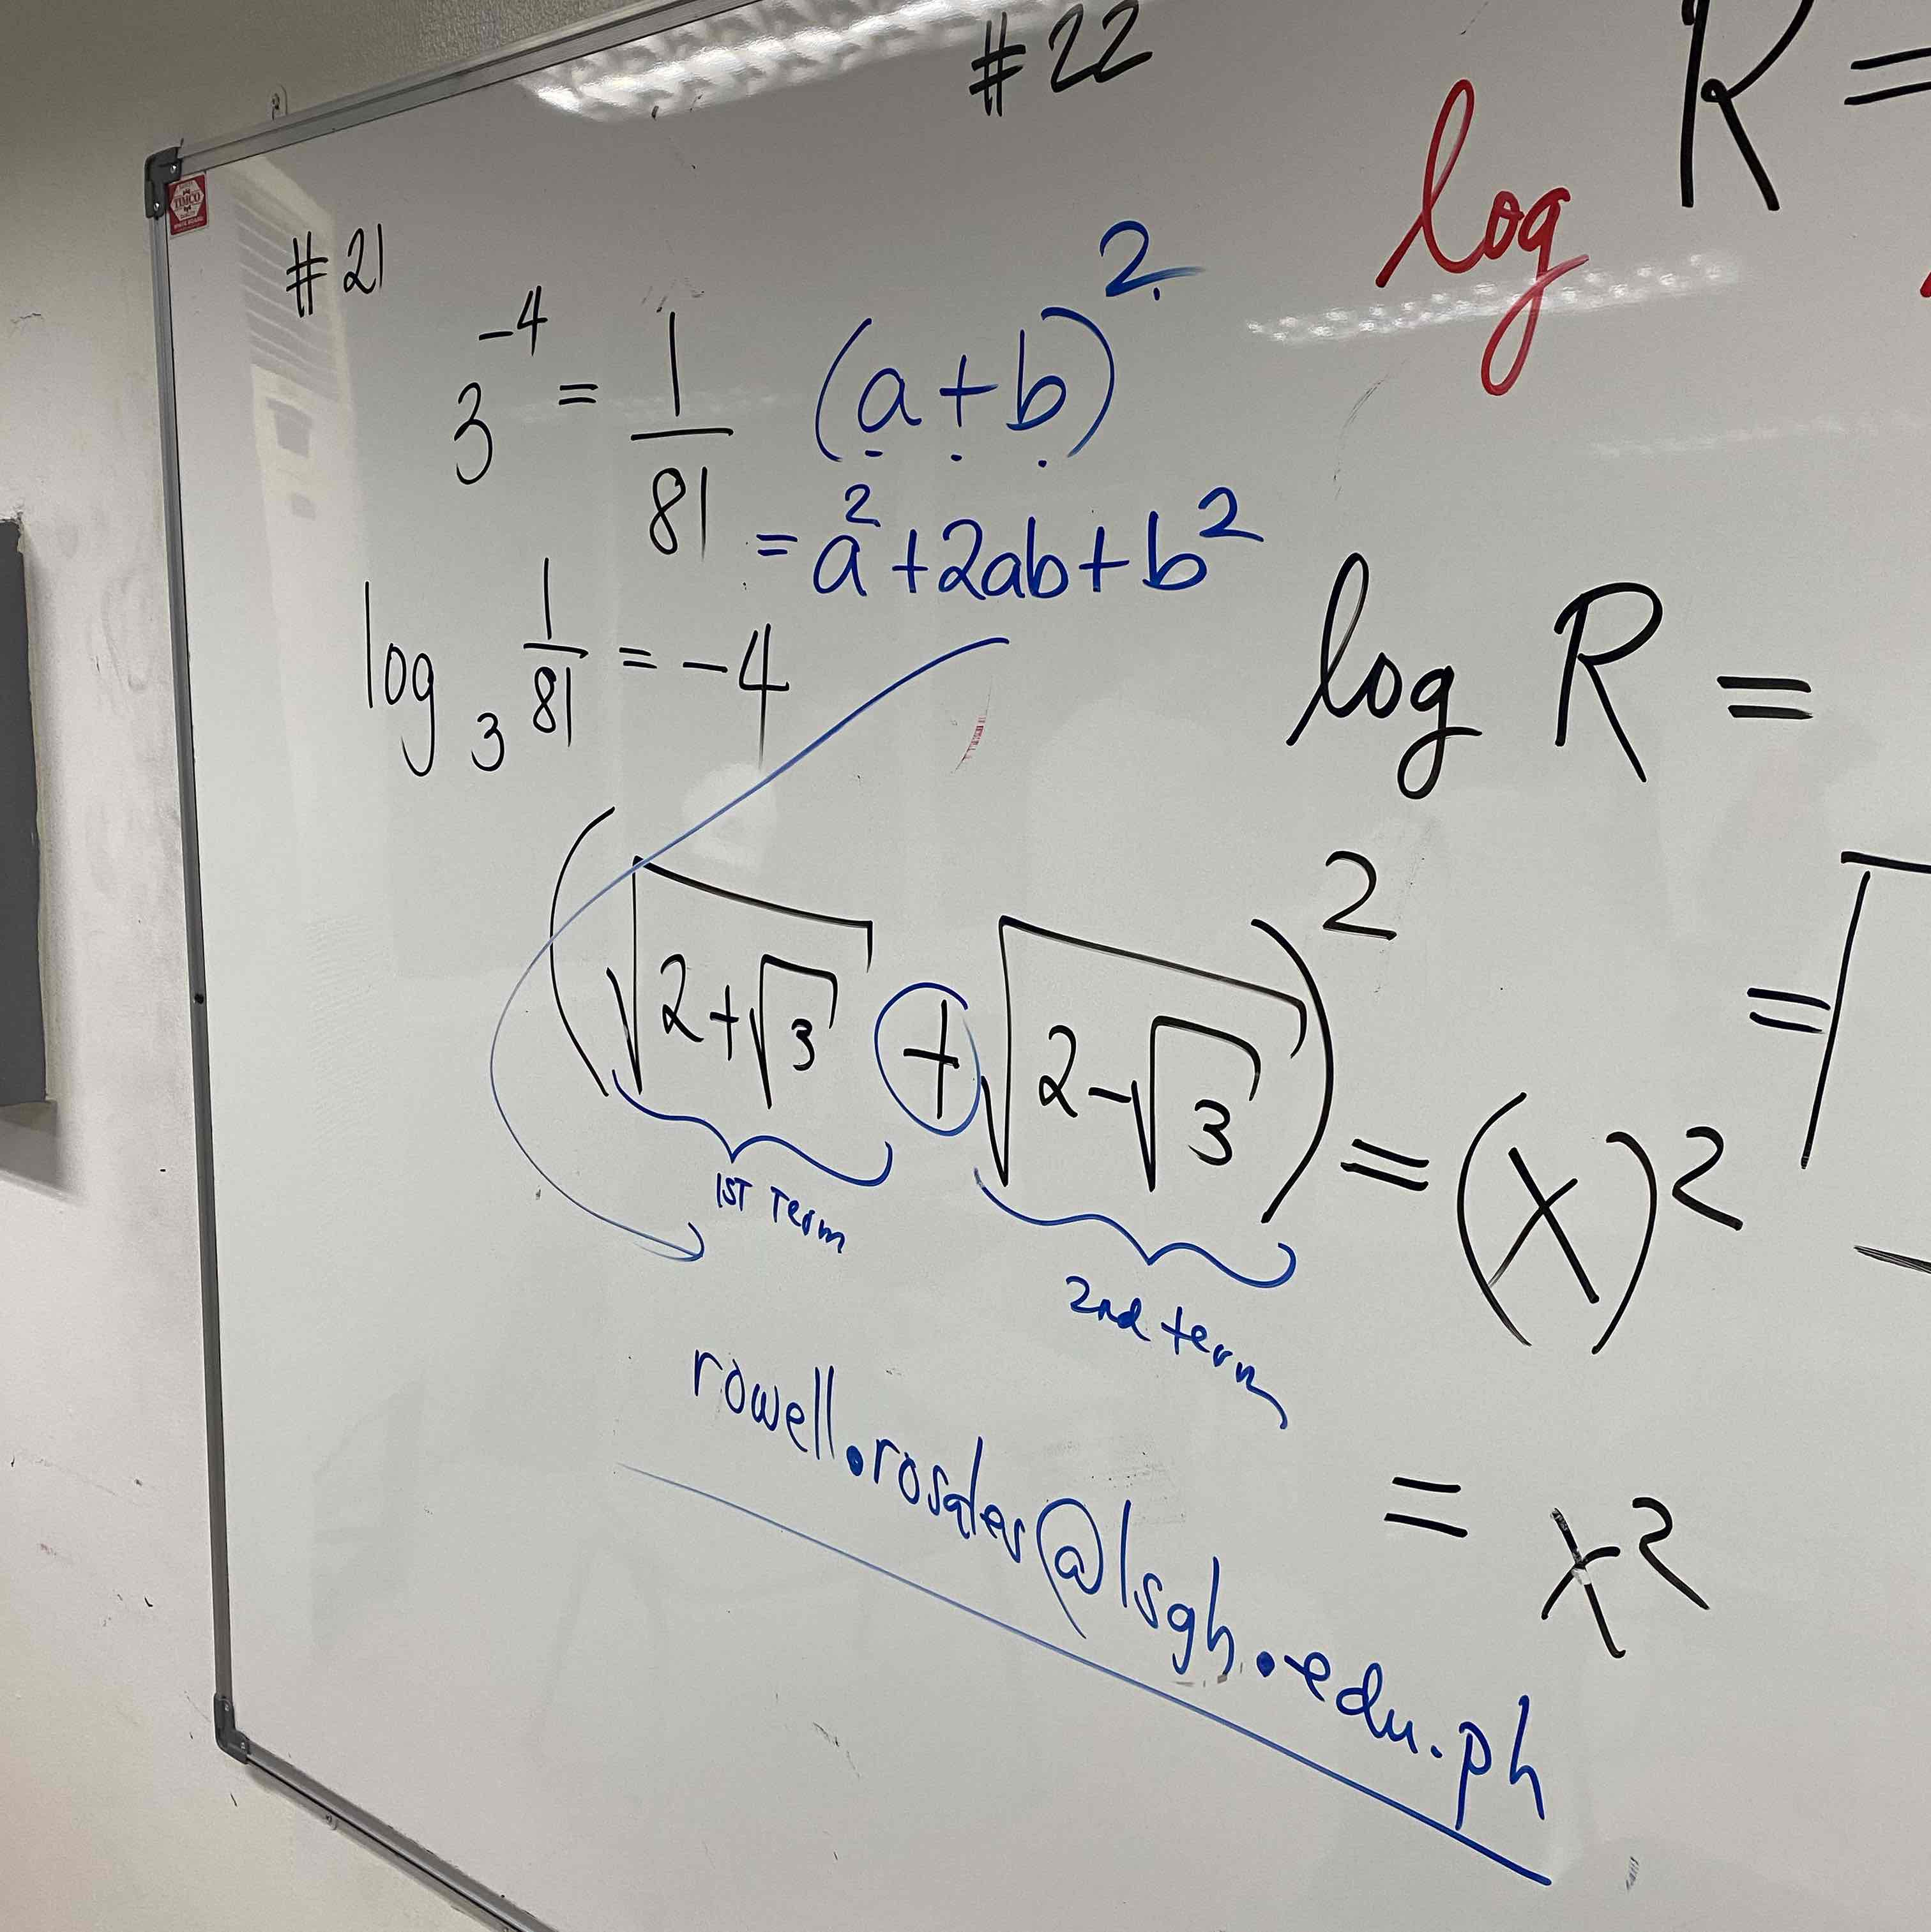 #22
R =
log
TIMCO
#21
3⁻⁴ = 1/81
(a+b)²
= a²+2ab+b²
log₃ 1/81 = -4
log R =
(√(2+√3) + √(2-√3))² = (x)²
=
1ST Term
2nd term
= x²
rowell.rosales@lsgh.edu.ph